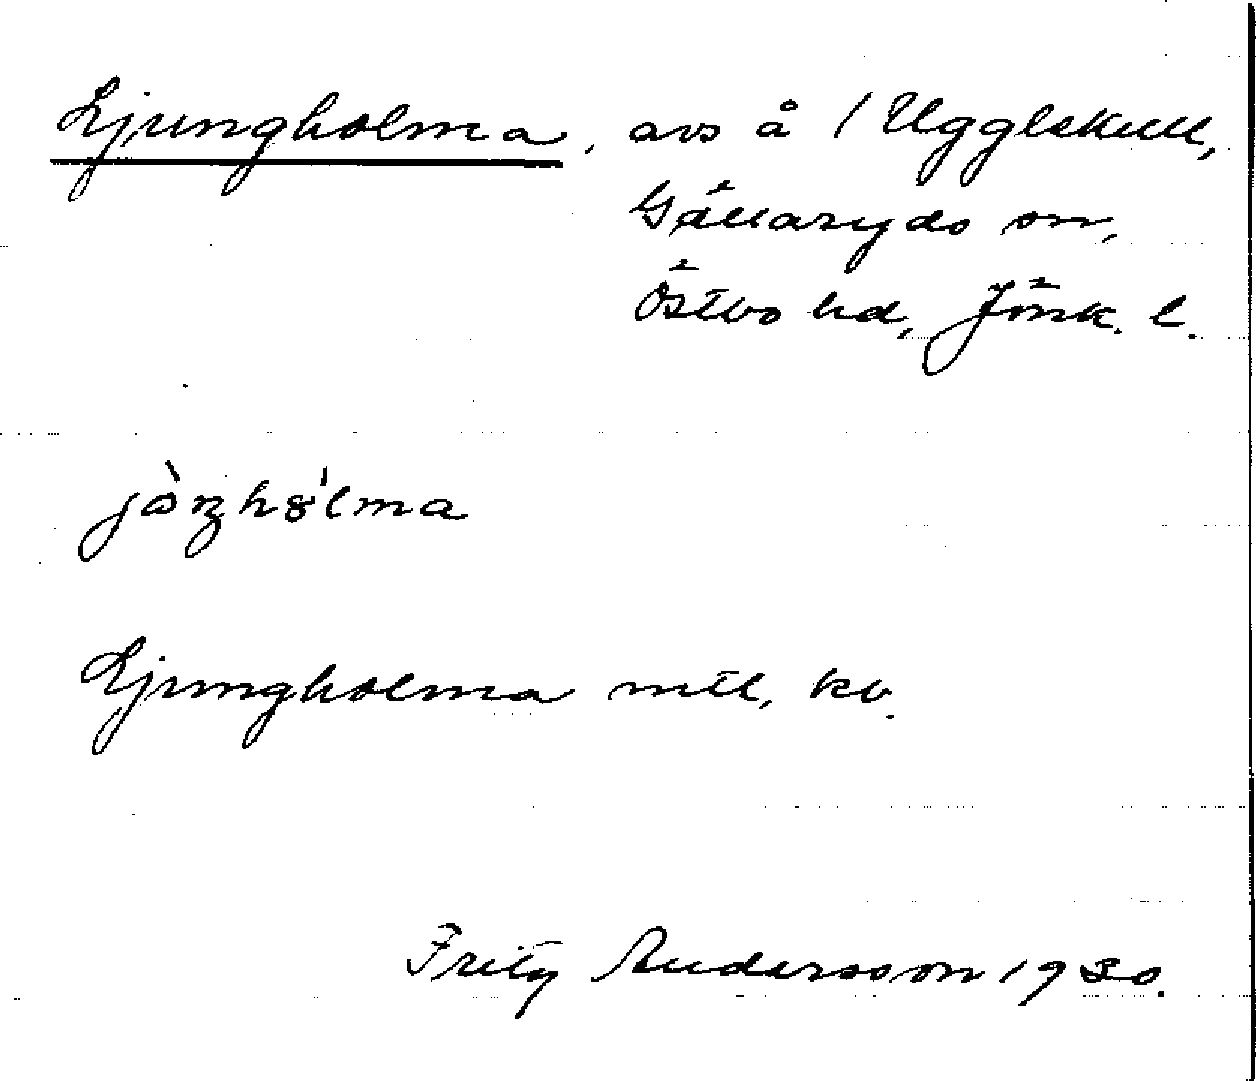 Ljungholma, avs å 1 Uggleskull,
Gällaryds sn,
Östbo hd, Jönk. l.
Ljungholma mtl, kb.
Fritz Andersson 1930.